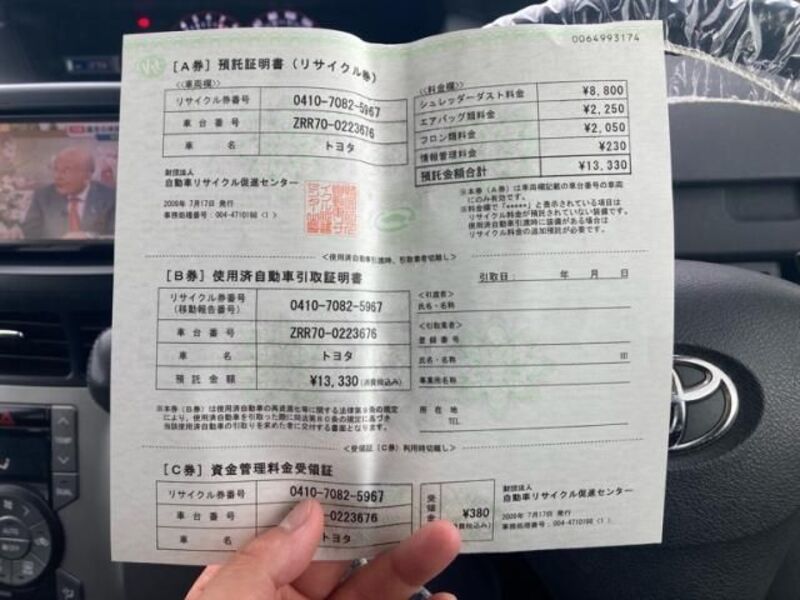 0064993174
[A券] 預託証明書(リサイクル券)
<車両欄>
リサイクル券番号 0410-7082-5967
車台番号 ZRR70-0223676
車名 トヨタ
<料金欄>
シュレッダーダスト料金 ¥8,800
エアバッグ類料金 ¥2,250
フロン類料金 ¥2,050
情報管理料金 ¥230
預託金額合計 ¥13,330
財団法人
自動車リサイクル促進センター
2008年 7月17日 発行
事務処理番号:004-4710198 (1)
※本券(A券)は車両欄記載の車台番号の車両
にのみ有効です。
※料金欄で「*****」と表示されている項目は
リサイクル料金が預託されていない装備です。
使用済自動車引渡時に装備がある場合は
リサイクル料金の追加預託が必要です。
<使用済自動車引渡時、引取業者切離し>
[B券] 使用済自動車引取証明書
引取日: 年 月 日
リサイクル券番号
(移動報告番号) 0410-7082-5967
車台番号 ZRR70-0223676
車名 トヨタ
預託金額 ¥13,330(消費税込み)
<引渡者>
氏名・名称
<引取業者>
登録番号
氏名・名称 印
事業所名称
所在地
TEL
※本券(B券)は使用済自動車の再資源化等に関する法律第9条の規定
により、使用済自動車を引取った際に同法第80条の規定に基づき
当該使用済自動車の引取りを求めた者に交付する書面となります。
<受領証(C券)利用時切離し>
[C券] 資金管理料金受領証
リサイクル券番号 0410-7082-5967
車台番号 -0223676
車名 トヨタ
受領金 ¥380
費税込み)
財団法人
自動車リサイクル促進センター
2008年 7月17日 発行
事務処理番号:004-4710198 (1)